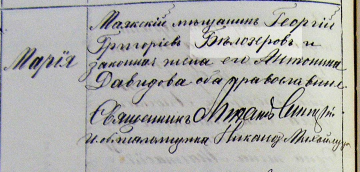 Маякскій мѣщанинъ Георгій
Григоріевъ Бѣлозеровъ и
Марія
законная жена его Антонина
Давидова оба православные
Священникъ
И. об. псаломщика Никаноръ Михайлу